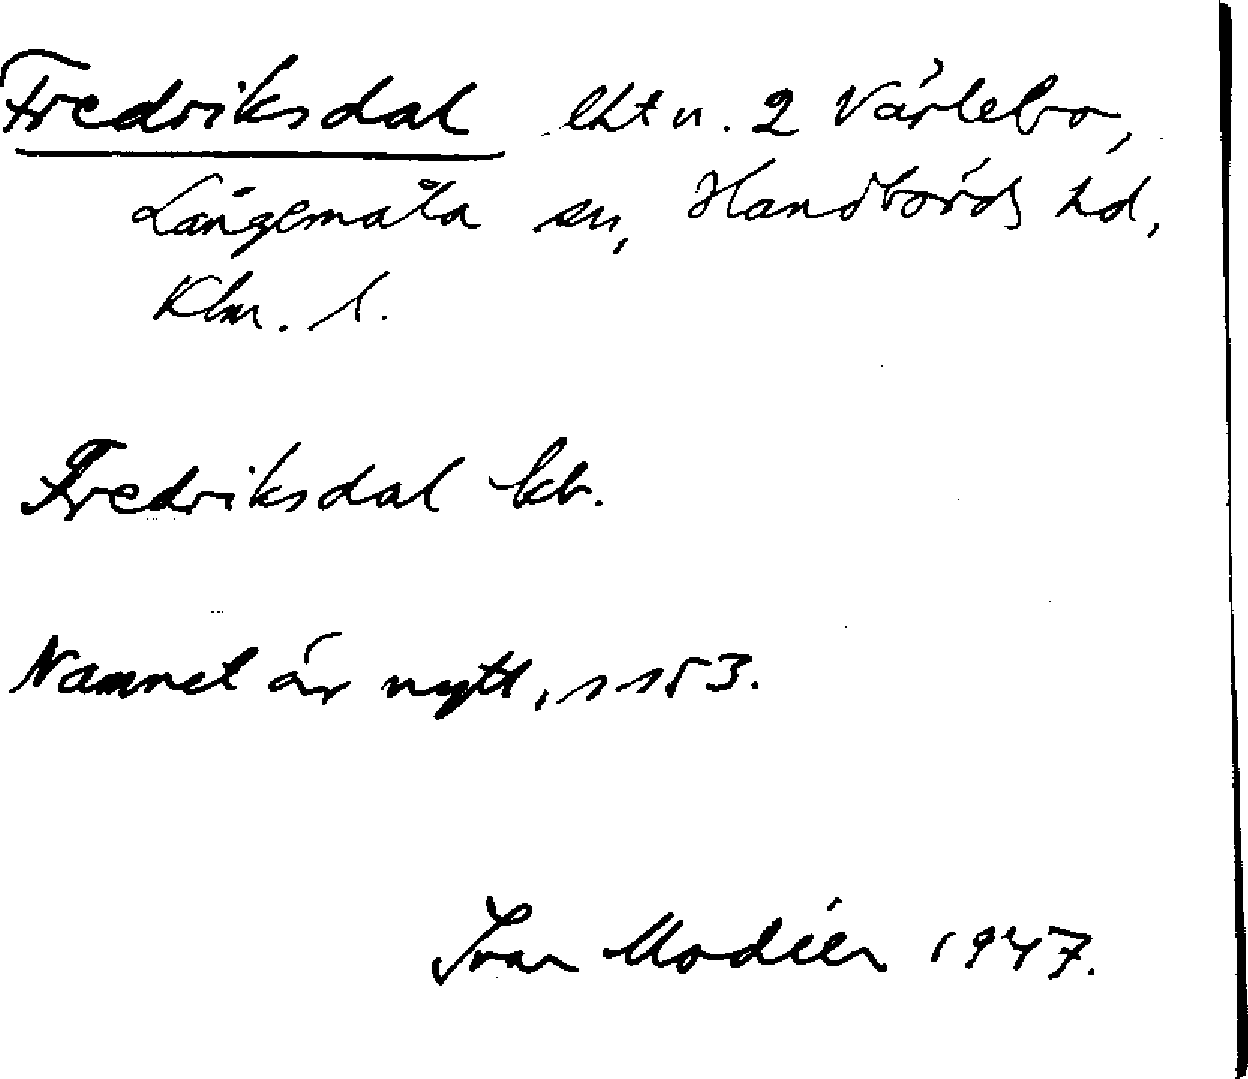 Fredriksdal lht u. 2 Värlebo,
Långemåla sn, Handbörds hd,
Klm. l.
Fredriksdal kb.
Namnet är nytt, s s 53.
Ivar Modéer 1947.